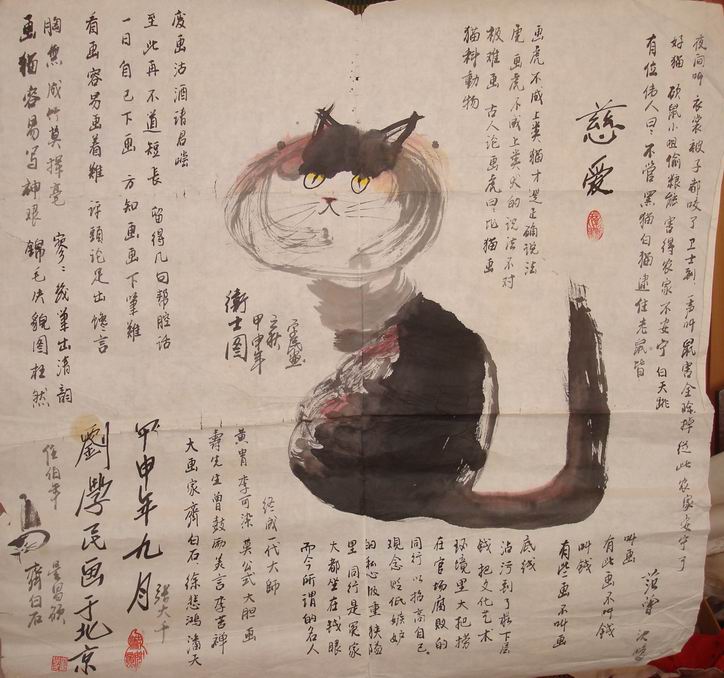 慈爱
夜间叫 衣裳被子都咬了 卫士到 一声叫 鼠害全除掉 从此农家安宁了
好猫 砍鼠小咀偷粮能 害得农家不安宁 白天跳
有位伟人曰：不管黑猫白猫逮住老鼠皆
画虎不成上类猫才是正确说法
虎 画虎不成上类犬的说法不对
极难画 古人论画虎曰：比猫画
猫科动物
废画沽酒请君嚐
至此再不道短长 留得几句帮腔话
一日自己下画 方知画画下笔难
看画容易画着难 评头论足出馋言
胸无成竹莫挥毫 寥寥几笔出清韵
画猫容易写神艰 锦毛决貌图枉然
衛士图
甲申年
叫画 范曾
有些画不叫钱
叫钱
有些画不叫画
底线
沾污到了最下层
钱 把文化艺术
环境里大把捞
在官场腐败的
同行以抬高自己
观念 贬低嫉妒
的私心很重狭隘
里 同行是冤家
大都坐在钱眼
而今所谓的名人
终成一代大师
黄胄 李可染 莫公式大胆画
寿先生曾鼓而美言 李苦禅
大画家齐白石 徐悲鸿 潘天
张大千
甲申年九月
劉學民画于北京
任伯年
吴昌硕
齐白石